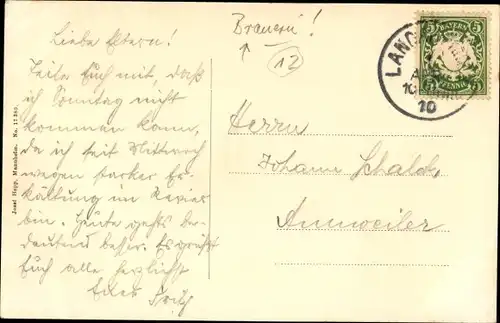 Liebe Eltern!
Teile Euch mit, daß
ich Sonntag nicht
kommen kann,
da ich seit Mittwoch
wegen starker Er-
kältung im Revier
bin. Heute geht's be-
deutend besser. Es grüßt
Euch alle herzlichst
Euer Fritz
Josef Hepp, Mannheim. No. 17
Brauerei!
12
BAYERN
5 5
PFENNIG
LAN
10
Herrn
Johann Schalck
Annweiler